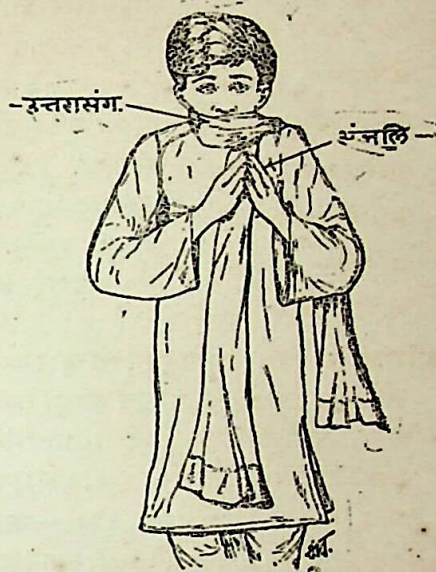 उत्तरासंग.
अंजलि